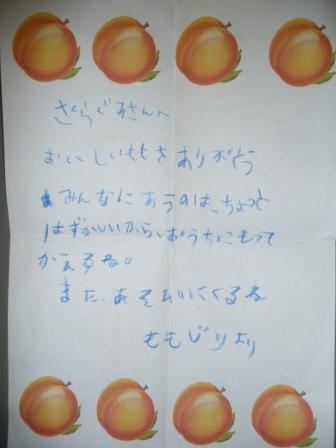 さくらぐみさんへ
おいしいももをありがとう
みんなにあうのは、ちょっと
はずかしいから、おうちにもって
かえるね。
また、あそびにくるね
ももじりより